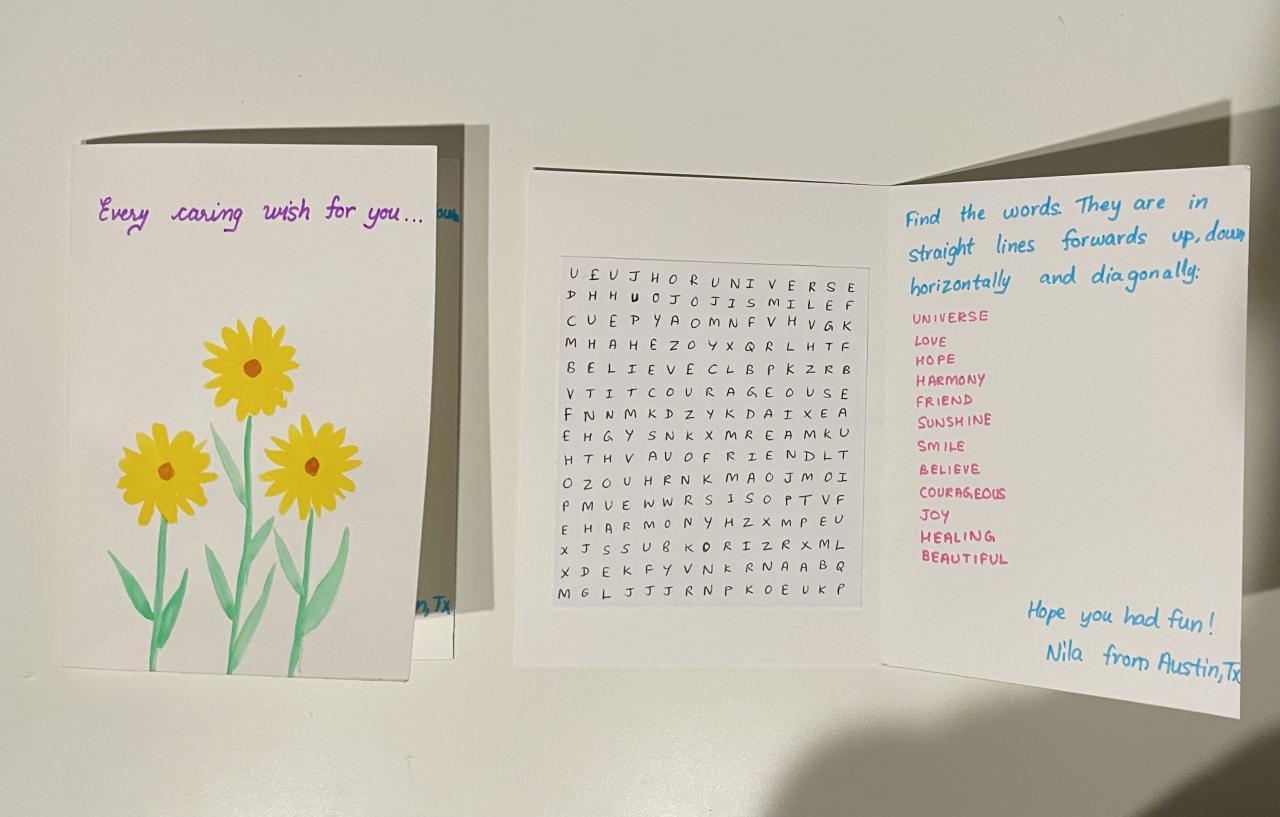 Every caring wish for you...
U E U J H O R U N I V E R S E
D H H U O J O J I S M I L E F
C U E P Y A O M N F V H V G K
M H A H E Z O Y X Q R L H T F
B E L I E V E C L B P K Z R B
V T I T C O U R A G E O U S E
F N N M K D Z Y K D A I X E A
E H G Y S N K X M R E A M K U
H T H V A U O F R I E N D L T
O Z O U H R N K M A O J M O I
P M U E W W R S I S O P T V F
E H A R M O N Y H Z X M P E U
X J S S U B K O R I Z R X M L
X D E K F Y V N K R N A A B Q
M G L J J J R N P K O E U K P
Find the words. They are in
straight lines forwards up, down
horizontally and diagonally:
UNIVERSE
LOVE
HOPE
HARMONY
FRIEND
SUNSHINE
SMILE
BELIEVE
COURAGEOUS
JOY
HEALING
BEAUTIFUL
Hope you had fun!
Nila from Austin, Tx